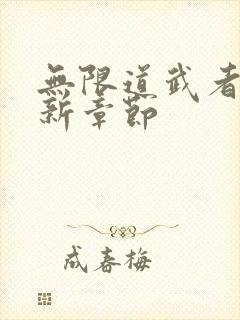 無限道武者
新章節
成春梅